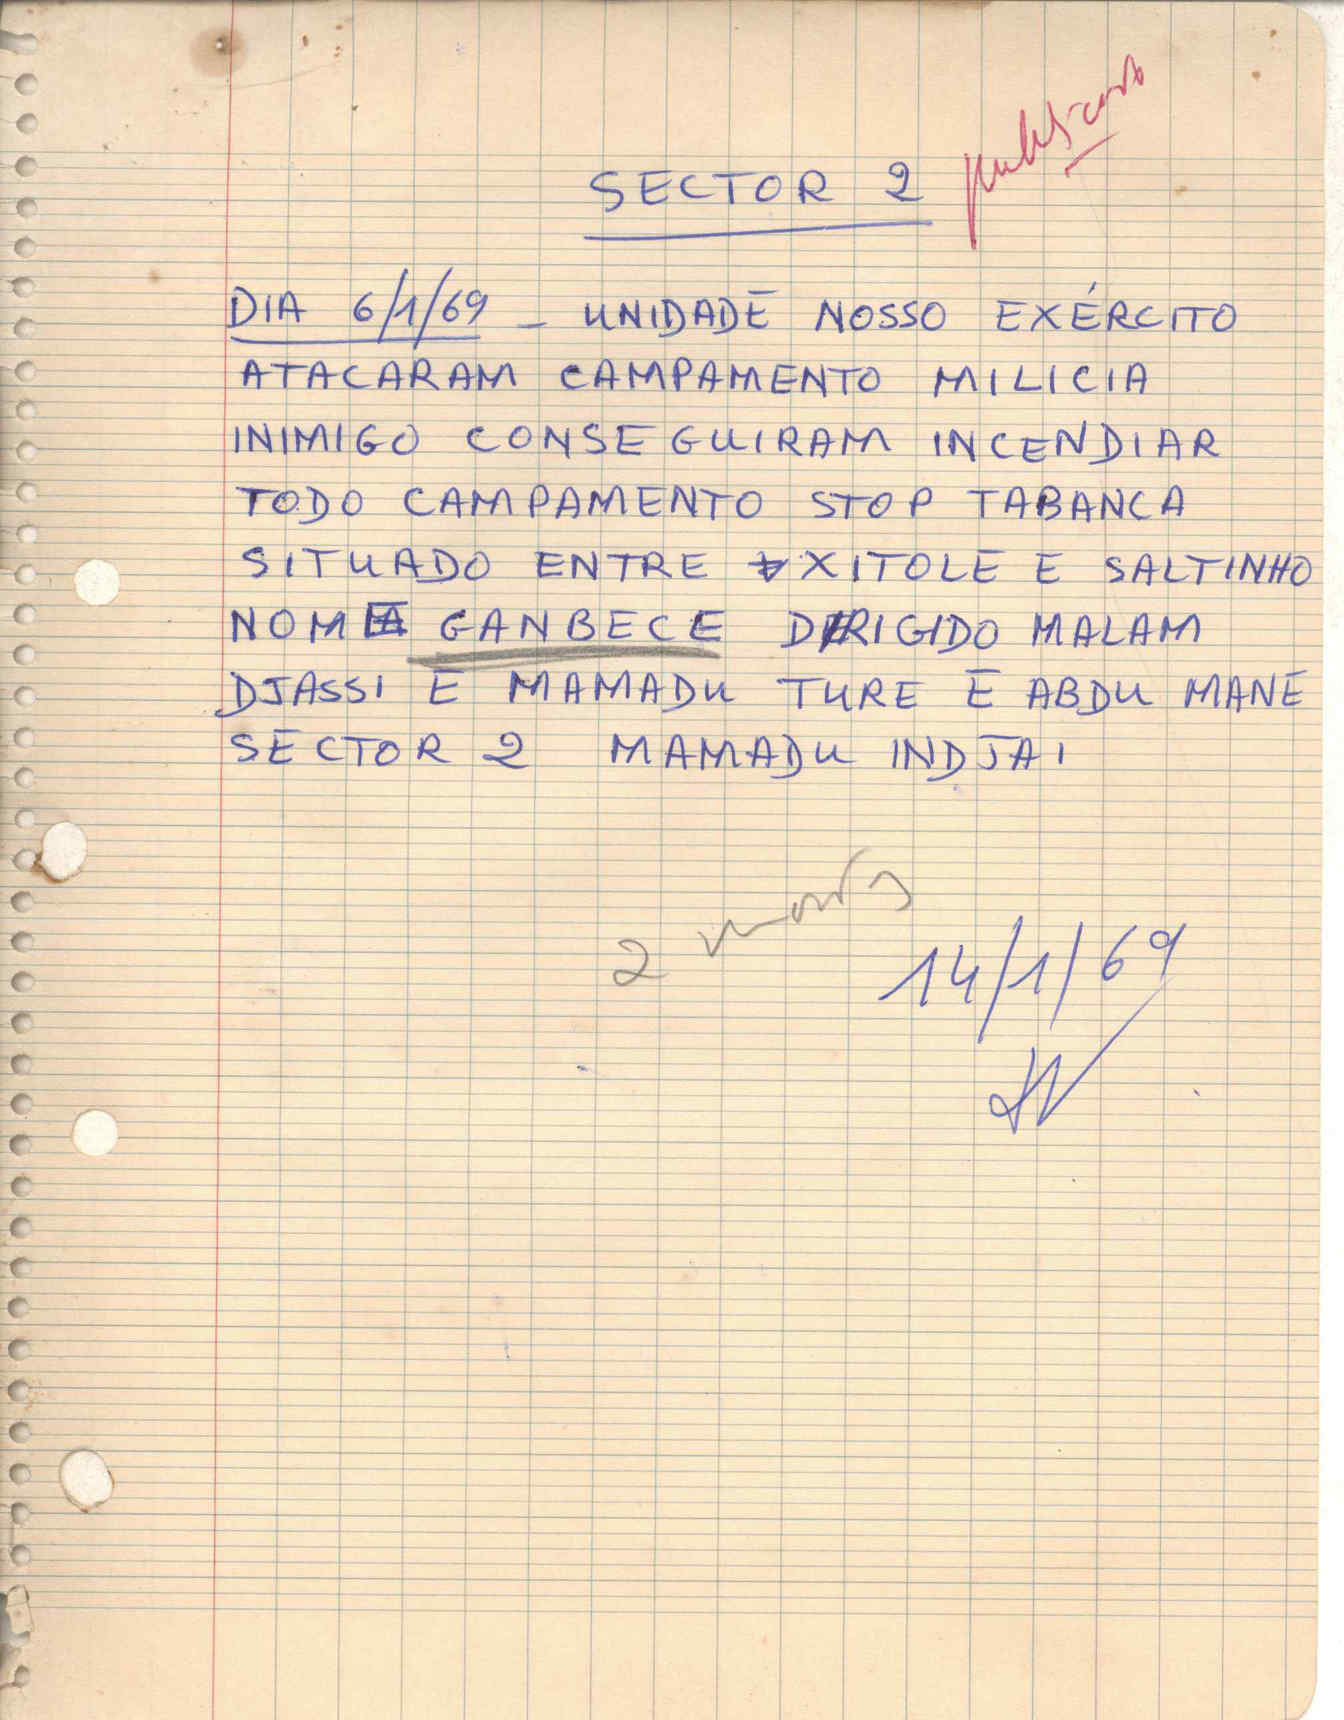 SECTOR 2
DIA 6/1/69 - UNIDADE NOSSO EXÉRCITO
ATACARAM CAMPAMENTO MILICIA
INIMIGO CONSEGUIRAM INCENDIAR
TODO CAMPAMENTO STOP TABANCA
SITUADO ENTRE XITOLE E SALTINHO
NOME GANBECE DIRIGIDO MALAM
DJASSI E MAMADU TURE E ABDU MANE
SECTOR 2 MAMADU INDJAI
2
14/1/69